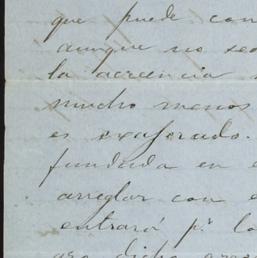 que puede con
aunque no sea
la acreencia
mucho menos
es exagerado.
fundada en e
arreglar con e
entrará pr. lo
gro dicho